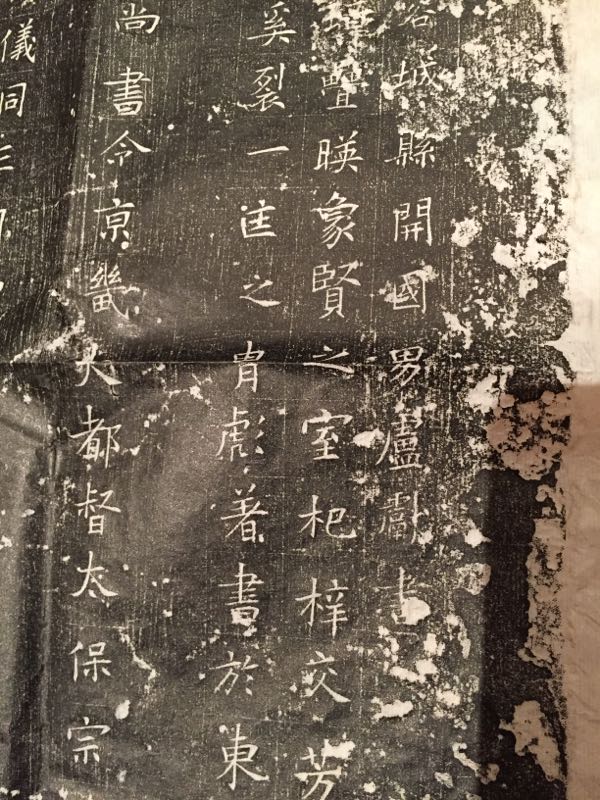 容城縣開國男盧獻書
疊暎象賢之室杞梓交芳
奚裂一匡之胄彪著書於東
尚書令亰畿大都督太保宗
儀同三